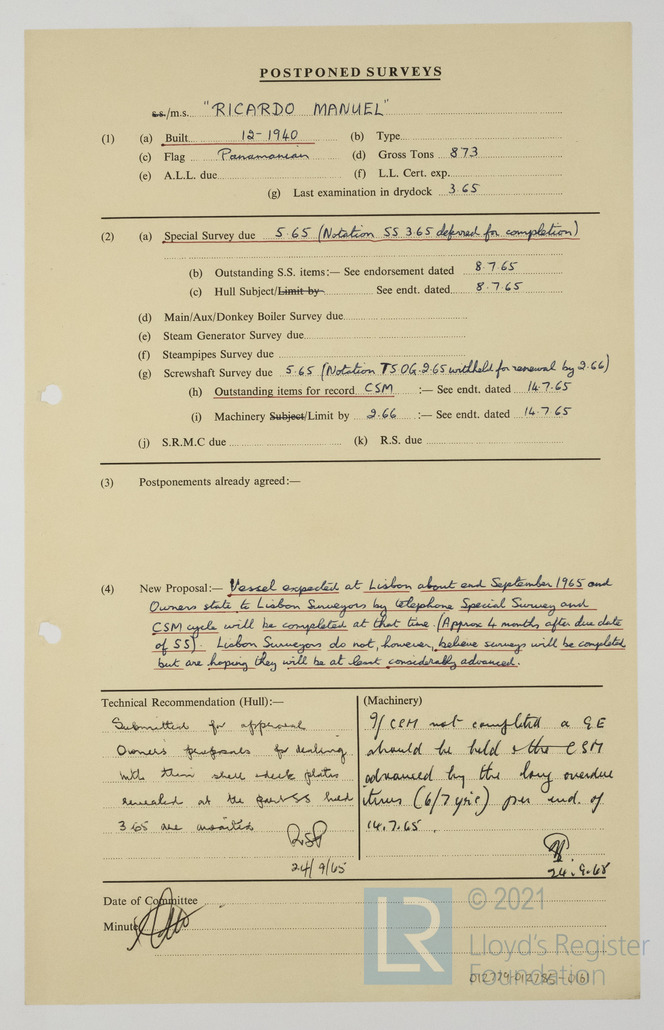 POSTPONED SURVEYS
s.s./m.s. "RICARDO MANUEL"
(1) (a) Built 12-1940 (b) Type
(c) Flag Panamanian (d) Gross Tons 873
(e) A.L.L. due (f) L.L. Cert. exp.
(g) Last examination in drydock 3.65
(2) (a) Special Survey due 5.65 (Notation SS 3.65 deferred for completion)
(b) Outstanding S.S. items:— See endorsement dated 8.7.65
(c) Hull Subject/Limit by See endt. dated 8.7.65
(d) Main/Aux/Donkey Boiler Survey due
(e) Steam Generator Survey due
(f) Steampipes Survey due
(g) Screwshaft Survey due 5.65 (Notation TSOG.2.65 withheld for renewal by 2.66)
(h) Outstanding items for record CSM :— See endt. dated 14.7.65
(i) Machinery Subject/Limit by 2.66 :— See endt. dated 14.7.65
(j) S.R.M.C due (k) R.S. due
(3) Postponements already agreed:—
(4) New Proposal:— Vessel expected at Lisbon about end September 1965 and
Owners state to Lisbon Surveyors by telephone Special Survey and
CSM cycle will be completed at that time. (Approx 4 months after due date
of SS). Lisbon Surveyors do not, however, believe surveys will be completed
but are hoping they will be at least considerably advanced.
Technical Recommendation (Hull):—
Submitted for approval
Owners proposals for dealing
with thin shell & deck plates
revealed at the part SS held
3.65 are awaited
RSP
24/9/65
(Machinery)
If CSM not completed a GE
should be held & the CSM
advanced by the long overdue
items (6/7 yrs) per end. of
14.7.65.
24.9.65
Date of Committee
Minute
LR
© 2021
Lloyd's Register
Foundation
012779-012785-0161